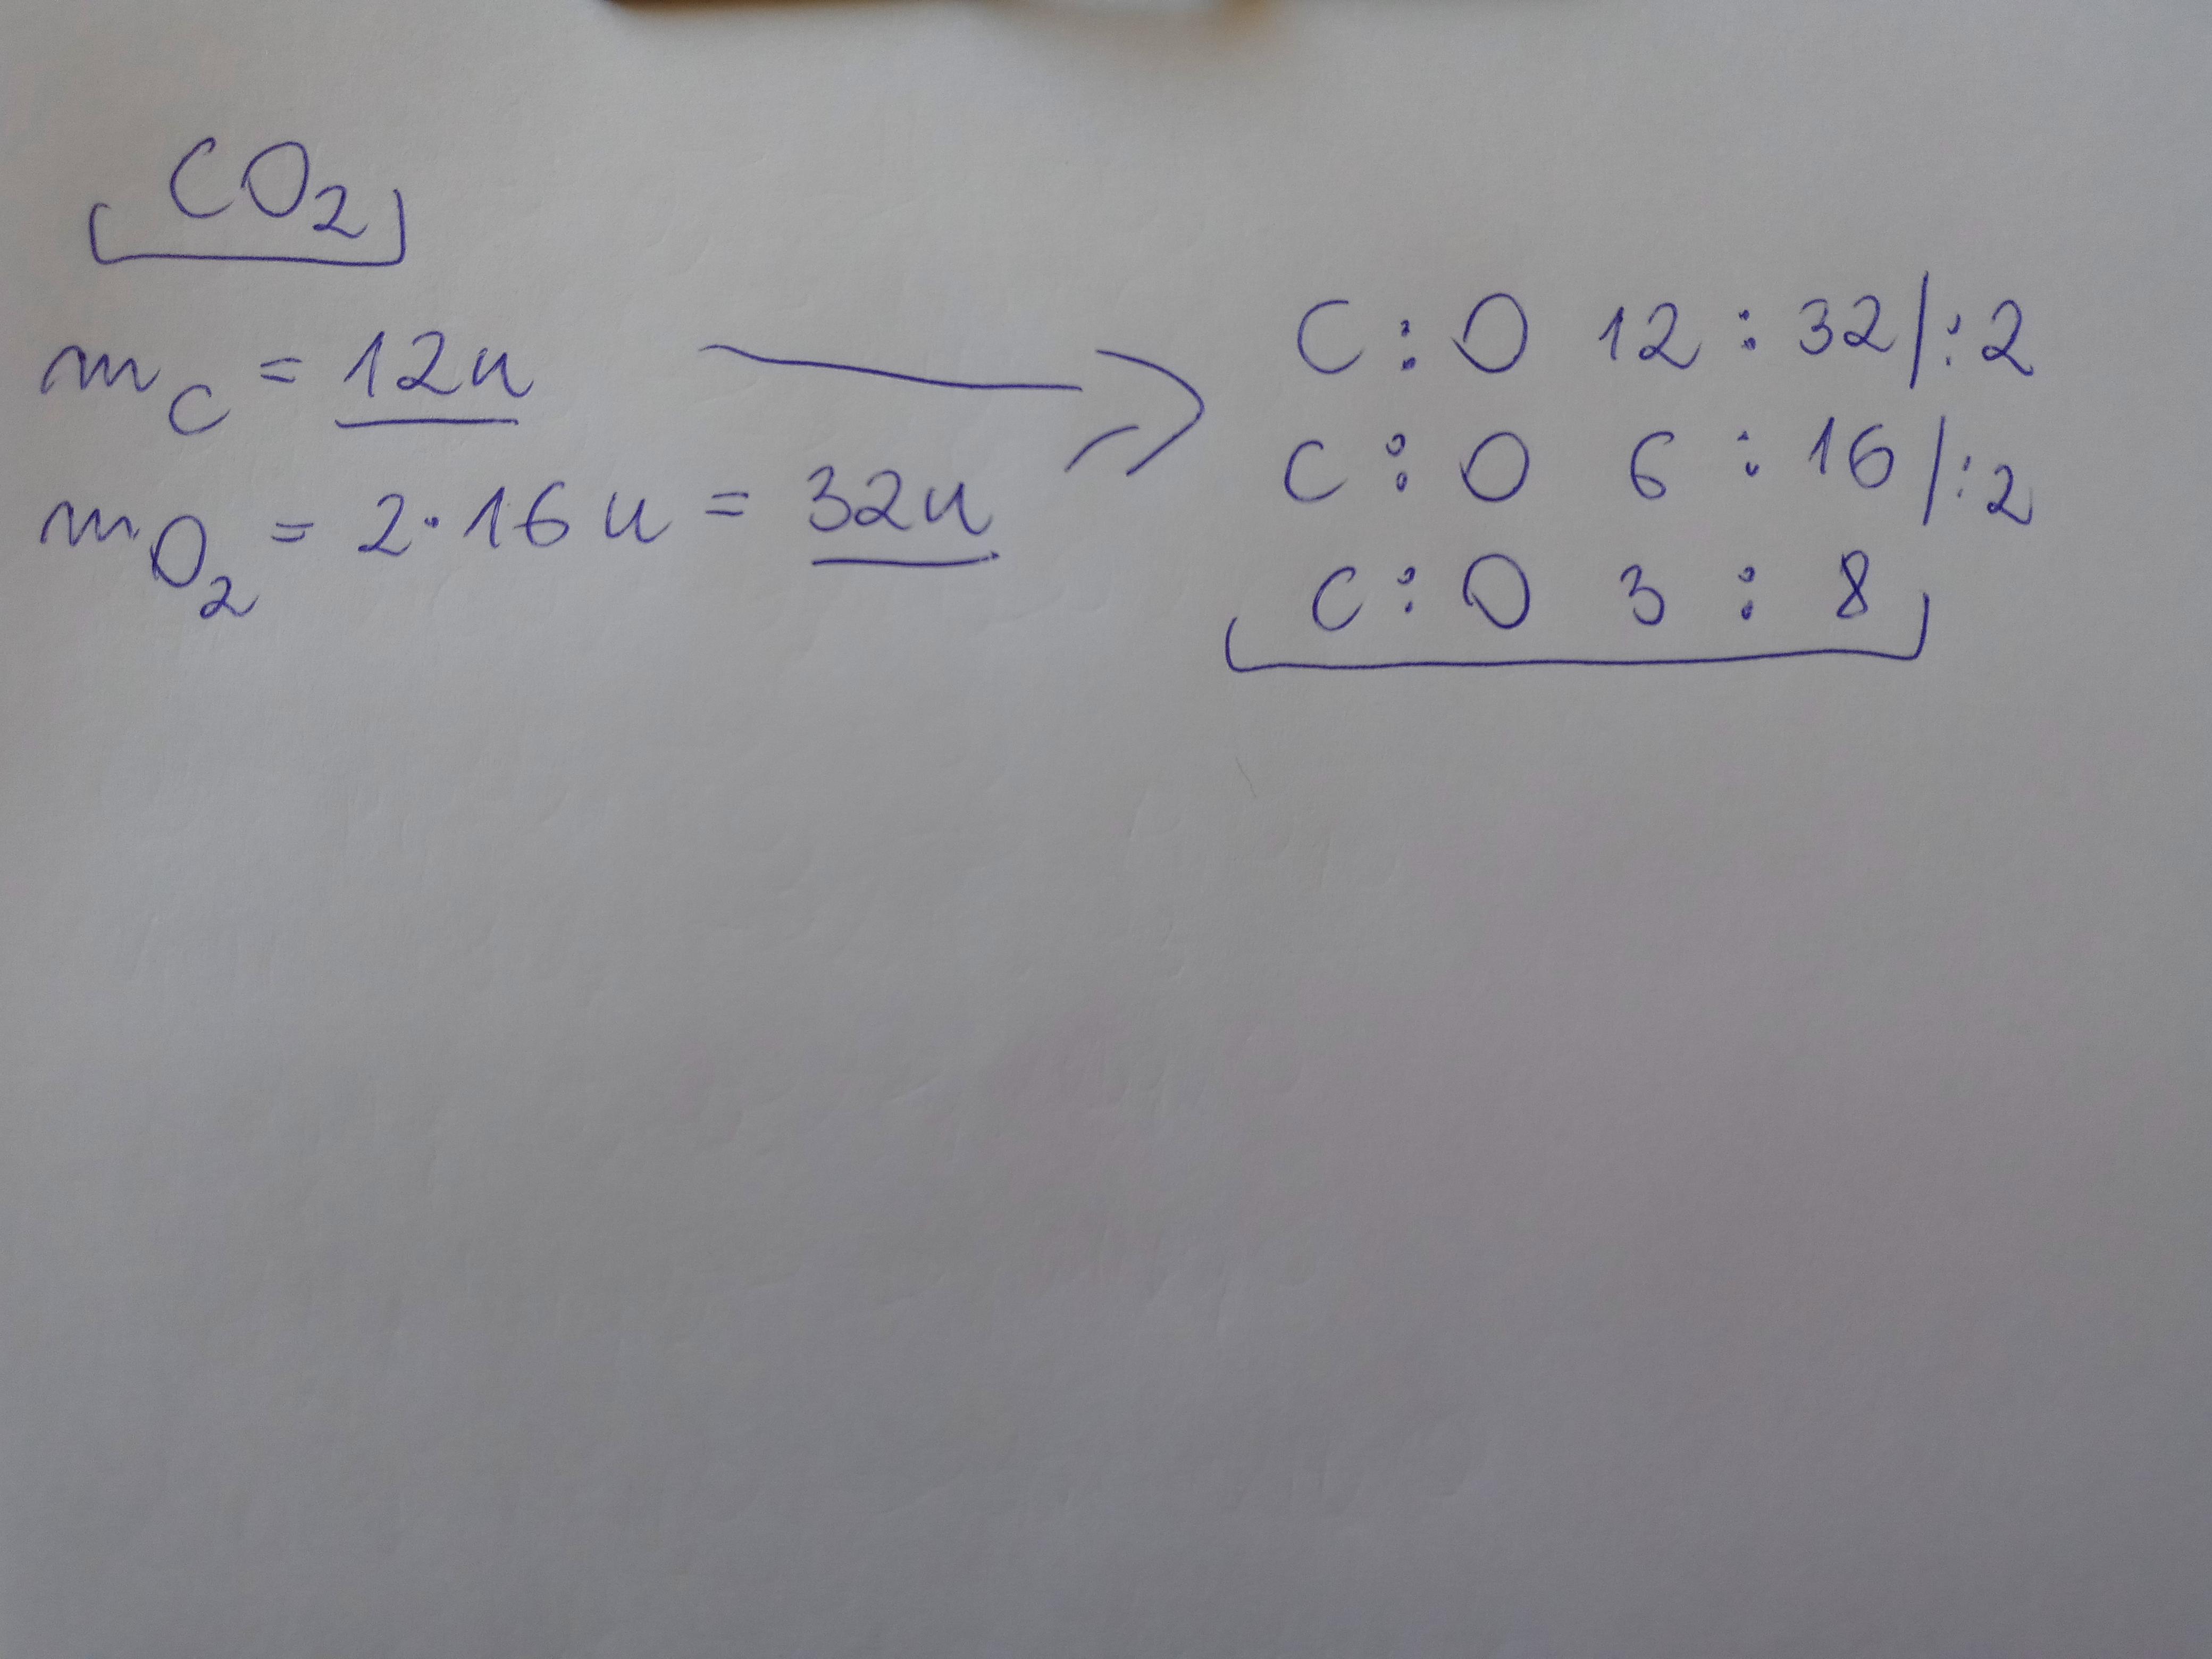 CO₂
m_C = 12u
m_O₂ = 2·16u = 32u
C : O 12 : 32 /:2
C : O 6 : 16 /:2
C : O 3 : 8